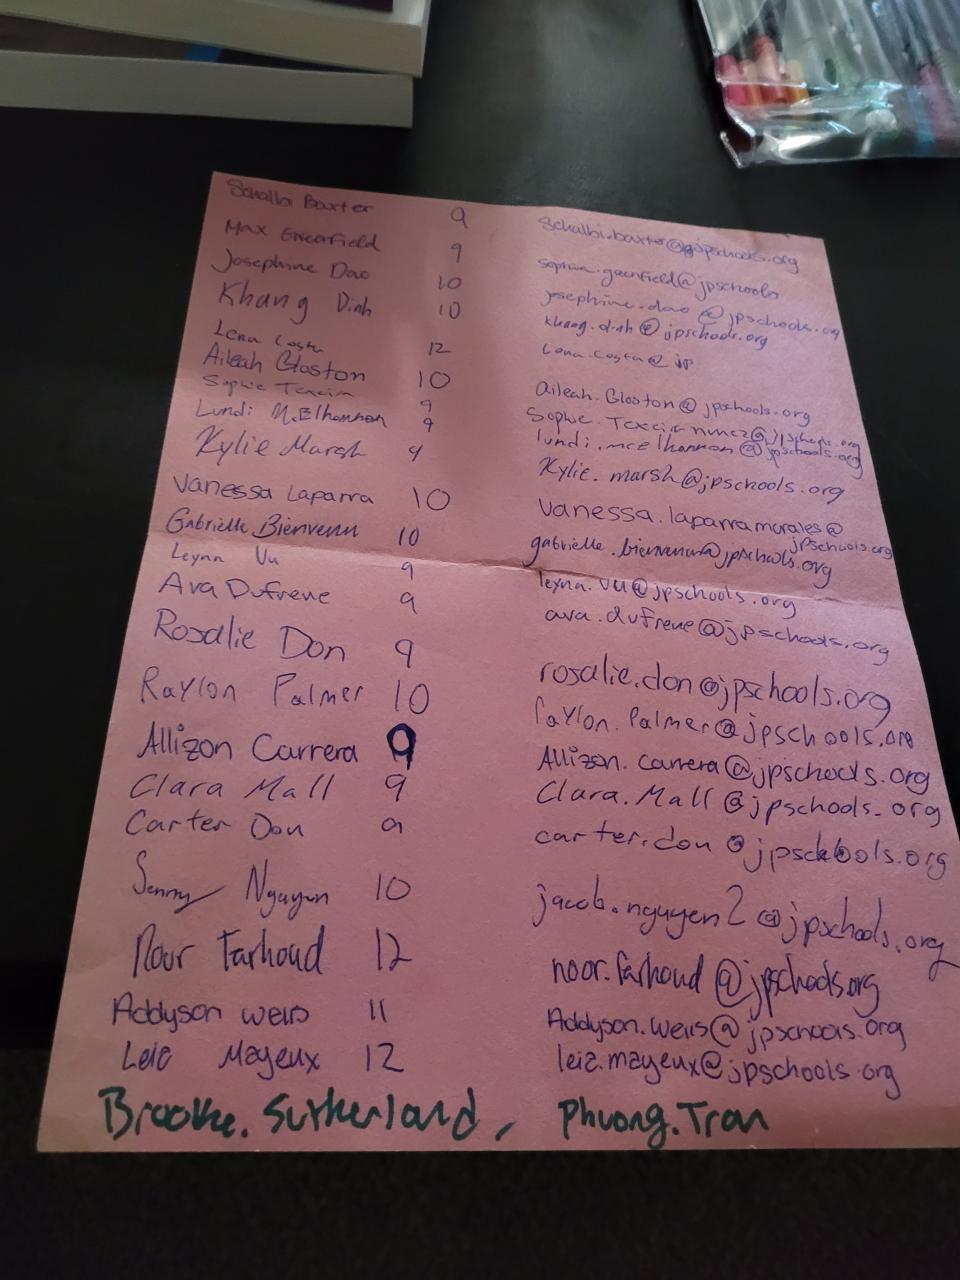 Schalbi Baxter 9 Schalbi.baxter@jpschools.org
Max Greenfield 9 sophia.greenfield@jpschools
Josephine Dao 10 josephine.dao@jpschools.org
Khang Dinh 10 khang.dinh@jpschools.org
Lena Costa 12 Lena.Costa@jp
Aileah Gloston 10 aileah.Gloston@jpschools.org
Sophie 9 Sophie.@jpschools.org
Lundi McElhannon 9 lundi.mcElhannon@jpschools.org
Kylie Marsh 9 Kylie.marsh@jpschools.org
Vanessa Laparra 10 vanessa.laparramorales@
jpschools.org
Gabrielle Bienvenu 10 gabrielle.bienvenu@jpschools.org
Leynn Vu 9 leyna.vu@jpschools.org
Ava Dufrene 9 ava.dufrene@jpschools.org
Rosalie Don 9 rosalie.don@jpschools.org
Raylon Palmer 10 raylon.Palmer@jpschools.org
Allizon Carrera 9 Allizon.carrera@jpschools.org
Clara Mall 9 Clara.Mall@jpschools.org
Carter Don 9 carter.don@jpschools.org
Nguyen 10 jacob.nguyen2@jpschools.org
Nour Farhoud 12 noor.farhoud@jpschools.org
Addyson weirs 11 Addyson.weirs@jpschools.org
Leia Mayeux 12 leia.mayeux@jpschools.org
Brooke.Sutherland, Phuong.Tran